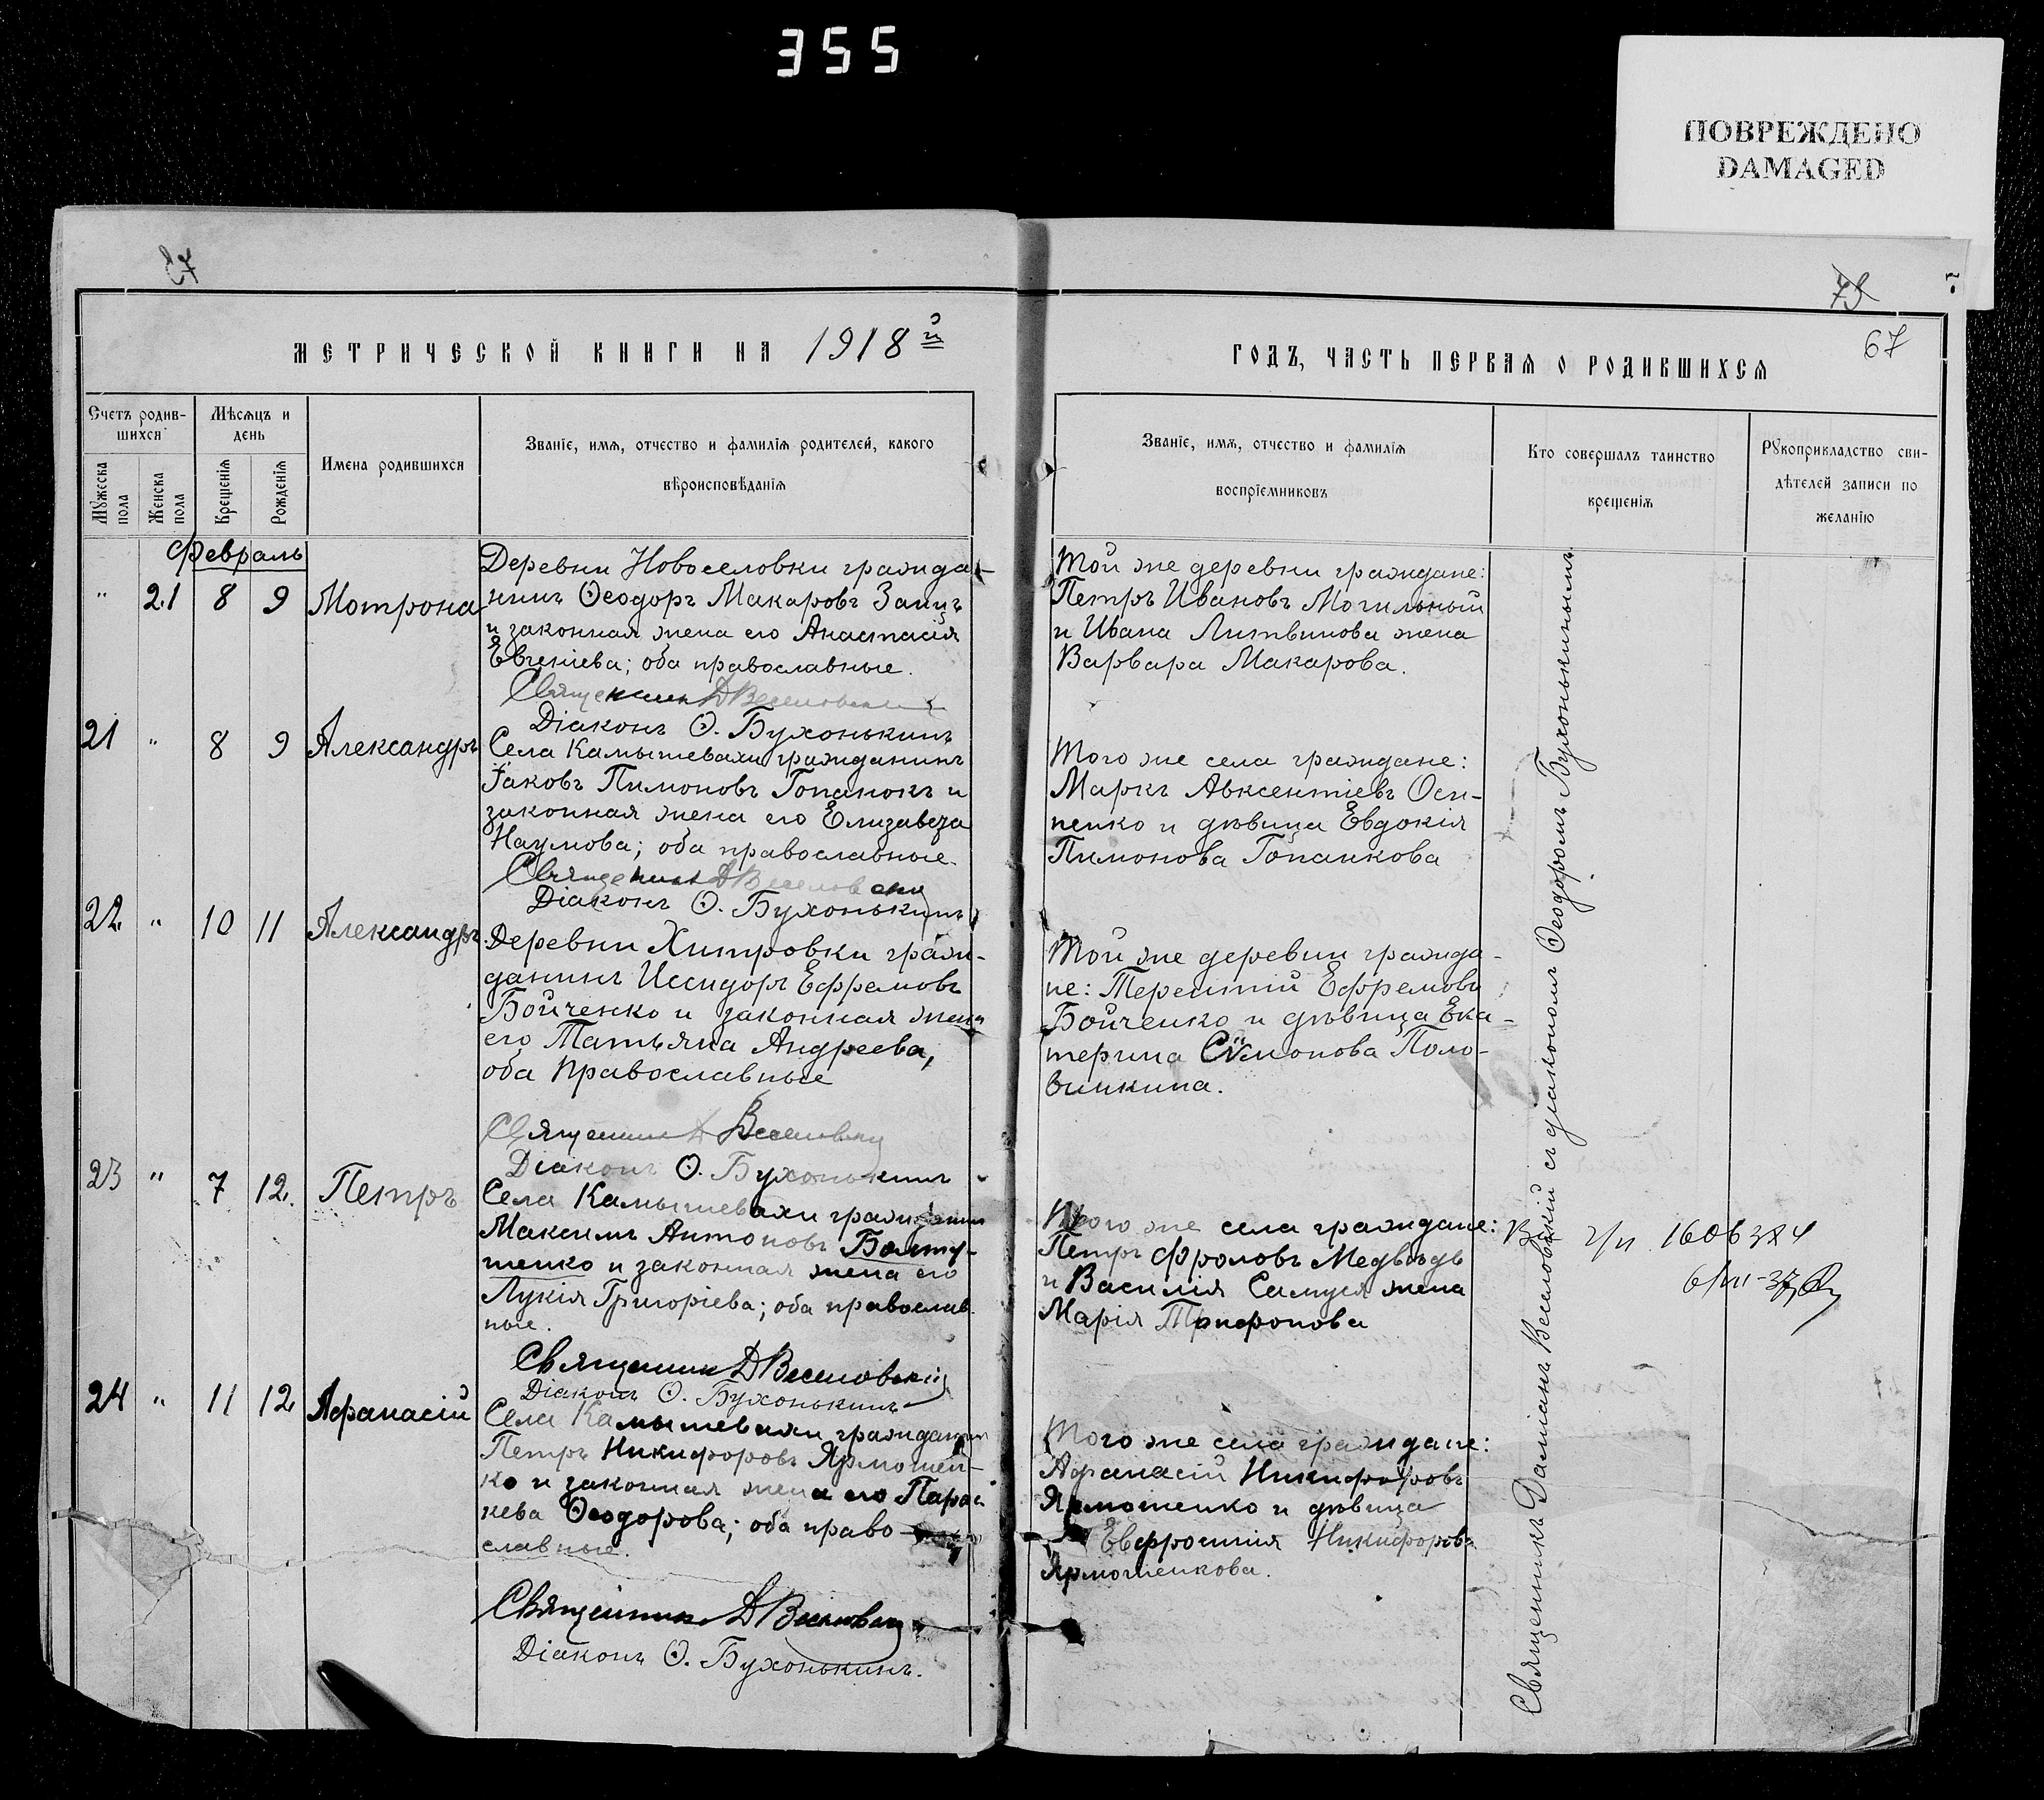 355
ПОВРЕЖДЕНО
DAMAGED
67
МЕТРИЧЕСКОЙ КНИГИ НА 1918й
Счетъ родив-
шихся
Мѣсяцъ и
день
Имена родившихся
Званіе, имя, отчество и фамилія родителей, какого
вѣроисповѣданія
Мужеска
пола
Женска
пола
Крещенія
Рожденія
Февраль
" 21 8 9 Мотрона
Деревни Новоселовки гражда-
нинъ Ѳеодоръ Макаровъ Заицъ
и законная жена его Анастасія
Евгеніева; оба православные.
Священникъ Д Веселовскій
Діаконъ Ѳ. Бухонькинъ
21 " 8 9 Александръ
Села Камышевахи гражданинъ
Іаковъ Пимоновъ Гопанокъ и
законная жена его Елизавета
Наумова; оба православные.
Священникъ Д Веселовскій
Діаконъ Ѳ. Бухонькинъ
22 " 10 11 Александръ
Деревни Хитровки граж-
данинъ Исидоръ Ефремовъ
Бойченко и законная жена
его Татьяна Андреева,
оба Православные
Священникъ Д Веселовскій
Діаконъ Ѳ. Бухонькинъ
23 " 7 12 Петръ
Села Камышевахи гражданинъ
Максимъ Антоновъ Болту-
шенко и законная жена его
Лукія Григоріева; оба православ-
ные.
Священникъ Д Веселовскій
Діаконъ Ѳ. Бухонькинъ
24 " 11 12 Афанасій
Села Камышевахи гражданинъ
Петръ Никифоровъ Ярмошен-
ко и законная жена его Парас-
кева Ѳеодорова; оба право-
славные.
Священникъ Д Веселовскій
Діаконъ Ѳ. Бухонькинъ.
67
ГОДЪ, ЧАСТЬ ПЕРВАЯ О РОДИВШИХСЯ
Званіе, имя, отчество и фамилія
воспріемниковъ
Кто совершалъ таинство
крещенія
Рукоприкладство сви-
дѣтелей записи по
желанію
Той же деревни граждане:
Петръ Ивановъ Могильный
и Ивана Литвинова жена
Варвара Макарова.
Того же села граждане:
Маркъ Авксентіевъ Оси-
пенко и дѣвица Евдокія
Пимонова Гопанкова
Той же деревни гражда-
не: Терентій Ефремовъ
Бойченко и дѣвица Ека-
терина Сѵмонова Поло-
винкина.
Того же села граждане:
Петръ Фроловъ Медвѣдь
и Василія Самуся жена
Марія Трифонова
Того же села граждане:
Афанасій Никифоровъ
Ярмошенко и дѣвица
Евфросинія Никифорова
Ярмошенкова.
Священникъ Даміанъ Веселовскій съ діакономъ Ѳеодоромъ Бухонькинымъ.